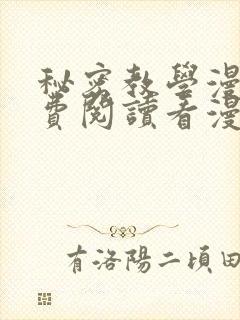 秘密教學漫
費閱讀看漫
有洛陽二頃田